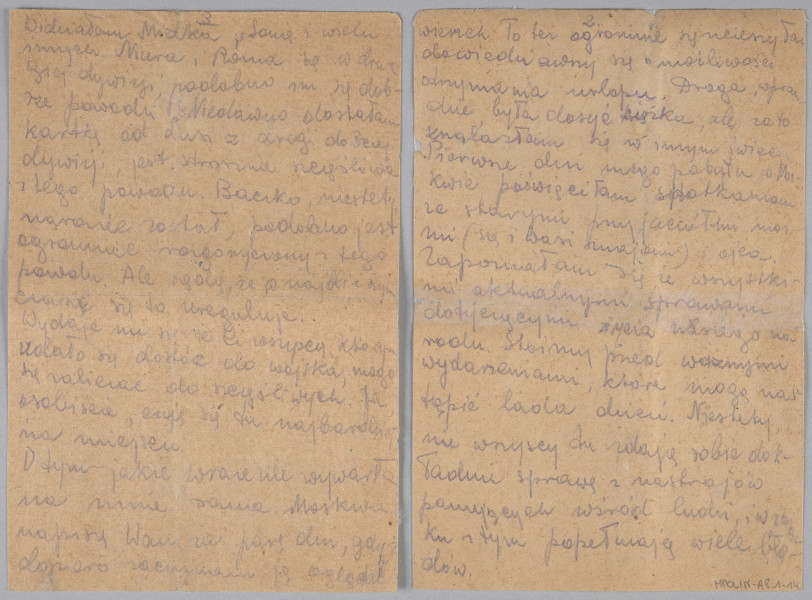 3
Widziałam Mietka, Sonię i wielu
innych. Niura i Róma są w dru-
giej dywizji, podobno im się dob-
rze powodzi. Niedawno dostałam
kartkę od Lusi z drogi do 3ciej
dywizji, jest strasznie szczęśliwa
z tego powodu. Backo, niestety,
narazie został, podobno jest
ogromnie rozgoryczony z tego
powodu. Ale sądzę, że w najbliższym
czasie się to ureguluje.
Wydaje mi się że Ci wszyscy, którym
udało się dostać do wojska, mogą
się zaliczać do szczęśliwych. Ja
osobiście, czuję się tu najbardziej
na miejscu.
O tym jakie wrażenie wywarła
na mnie sama Moskwa
napiszę Wam za parę dni, gdyż
dopiero zaczynam ją oglądać
2
wierzch. To też ogromnie się ucieszyłam
dowiedziawszy się o możliwości
otrzymania urlopu. Droga, wpraw-
dzie, była dosyć ciężka, ale zato
znalazłam się w innym świecie.
Pierwsze dni mego pobytu w Mo-
skwie poświęciłam spotkaniom
ze starymi przyjaciółmi moi-
mi (są i Wasi znajomi) i ojca.
Zapoznałam się ze wszystki-
mi aktualnymi sprawami
dotyczącymi życia naszego na-
rodu. Stoimy przed ważnymi
wydarzeniami, które mogą nas-
tąpić lada dzień. Niestety,
nie wszyscy tu zdają sobie dok-
ładnie sprawę z nastrojów
panujących wśród ludzi, i w związ-
ku z tym popełniają wiele błę-
dów.
MPOLIN-A8.1.14